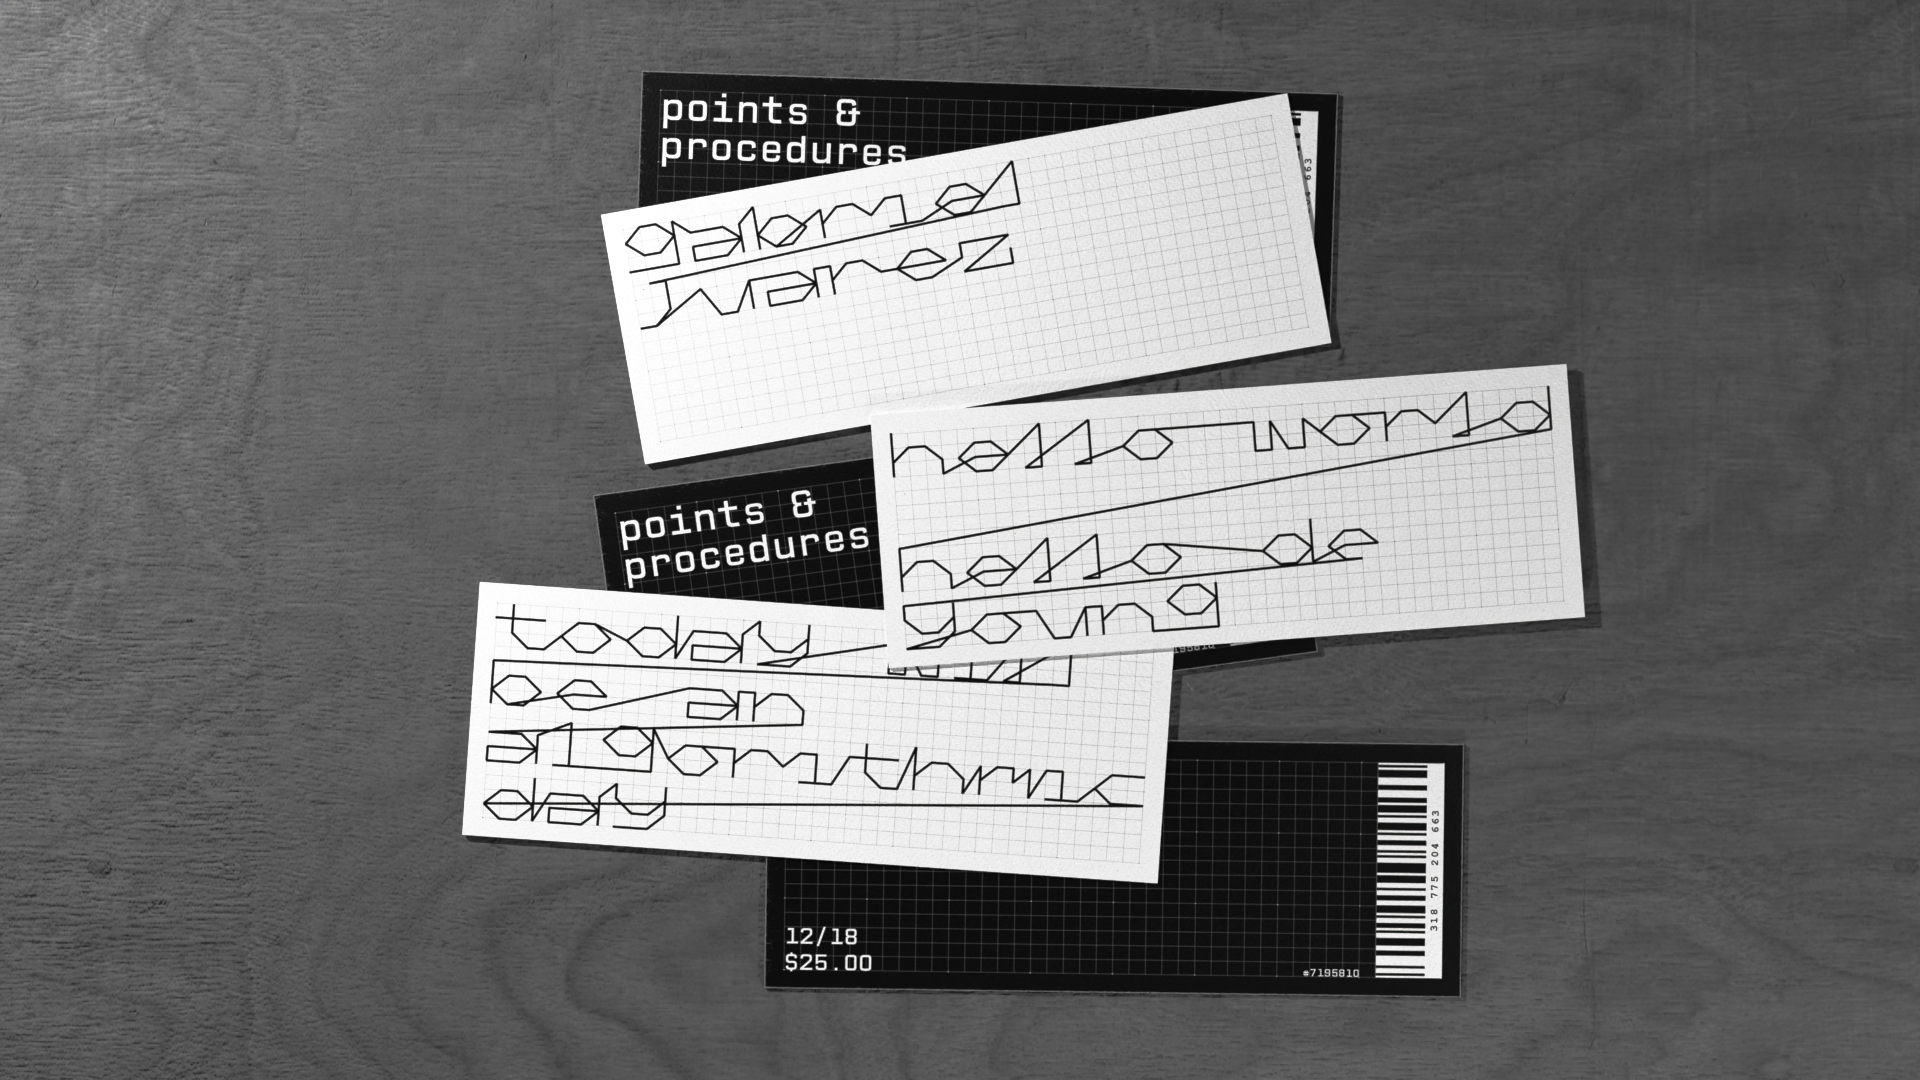 points &
procedures
663
gabriel
juarez
hello world
hello de
young
points &
procedures
today
be an
algorithmic
day
12/18
$25.00
#7195810
318 775 204 663